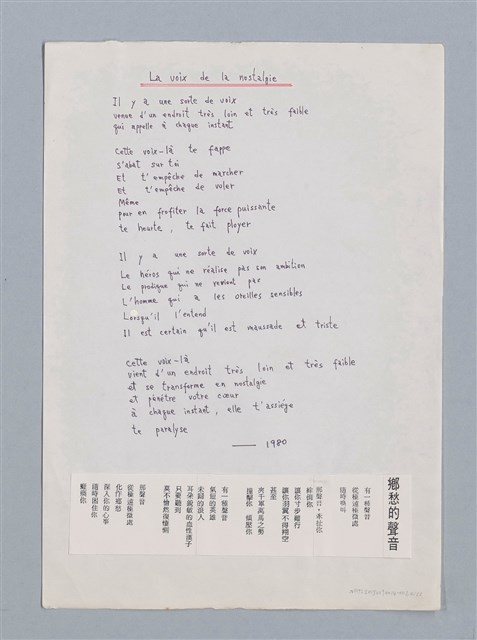 La voix de la nostalgie
Il y a une sorte de voix
venue d'un endroit très loin et très faible
qui appelle à chaque instant
Cette voix-là te fappe
s'abat sur toi
Et t'empêche de marcher
Et t'empêche de voler
Même
pour en profiter la force puissante
te heurte, te fait ployer
Il y a une sorte de voix
Le héros qui ne réalise pas son ambition
Le prodigue qui ne revient pas
L'homme qui a les oreilles sensibles
Lorsqu'il l'entend
Il est certain qu'il est maussade et triste
Cette voix-là
vient d'un endroit très loin et très faible
et se transforme en nostalgie
et pénètre votre cœur
à chaque instant, elle t'assiège
te paralyse
— 1980
鄉愁的聲音
有一種聲音
從極遠極微處
隨時呼叫
那聲音，牽扯你
絆倒你
讓你寸步難行
讓你羽翼不得翔空
甚至
夾千軍萬馬之勢
撞擊你 摧壓你
有一種聲音
氣短的英雄
未歸的浪人
耳朵銳敏的血性漢子
只要聽到
莫不愴然復悽惻
那聲音
從極遠極微處
化作鄉愁
深入你的心事
隨時困住你
癱瘓你